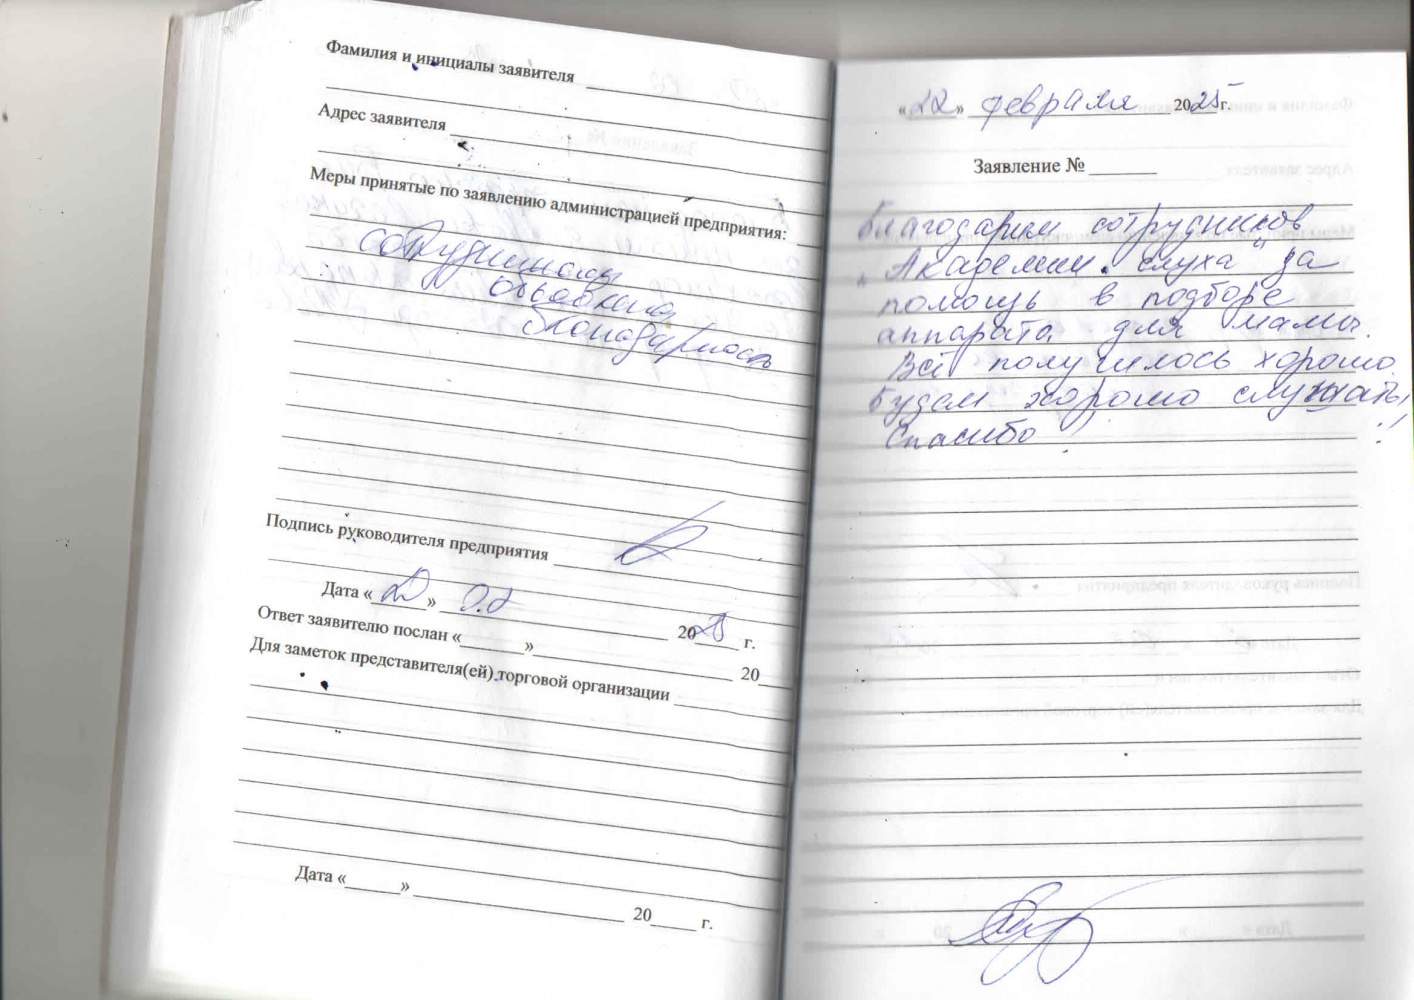 Фамилия и инициалы заявителя
Адрес заявителя
Меры принятые по заявлению администрацией предприятия:
сотруднику
объявлена
благодарность
Подпись руководителя предприятия
Дата « » 02 2025 г.
Ответ заявителю послан « » 20
Для заметок представителя(ей) торговой организации
Дата « » 20 г.
«22» февраля 2025г.
Заявление №
Благодарим сотрудников
"Академии слуха" за
помощь в подборе
аппарата для мамы.
Всё получилось хорошо.
Будем хорошо слушать!
Спасибо!